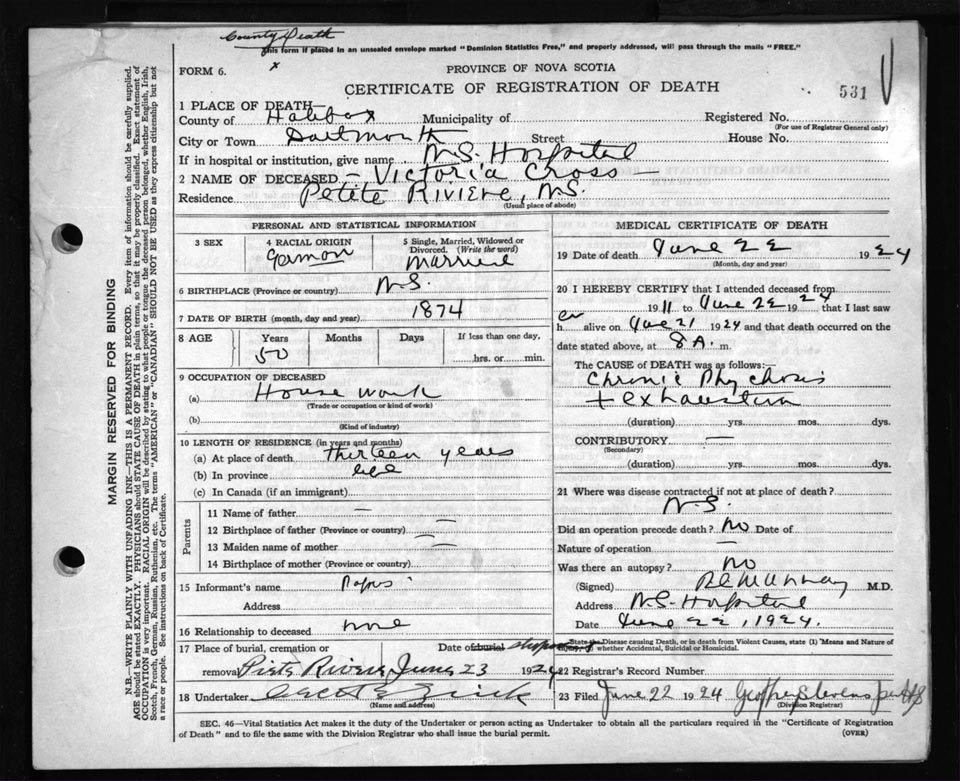 County Death
This form if placed in an unsealed envelope marked "Dominion Statistics Free," and properly addressed, will pass through the mails "FREE."
FORM 6.
x
PROVINCE OF NOVA SCOTIA
CERTIFICATE OF REGISTRATION OF DEATH
531
1 PLACE OF DEATH—
County of Halifax Municipality of Registered No.
(For use of Registrar General only)
City or Town Dartmouth Street House No.
If in hospital or institution, give name N.S. Hospital
2 NAME OF DECEASED – Victoria Cross –
Residence Petite Riviere, N.S.
(Usual place of abode)
PERSONAL AND STATISTICAL INFORMATION
3 SEX
4 RACIAL ORIGIN
German
5 Single, Married, Widowed or
Divorced. (Write the word)
Married
6 BIRTHPLACE (Province or country) N.S.
7 DATE OF BIRTH (month, day and year) 1874
8 AGE Years Months Days If less than one day,
50 hrs. or min.
9 OCCUPATION OF DECEASED
(a) House work
(Trade or occupation or kind of work)
(b)
(Kind of industry)
10 LENGTH OF RESIDENCE (in years and months)
(a) At place of death thirteen years
(b) In province life
(c) In Canada (if an immigrant)
Parents
11 Name of father —
12 Birthplace of father (Province or country) —
13 Maiden name of mother —
14 Birthplace of mother (Province or country) —
15 Informant's name
Address
16 Relationship to deceased none
17 Place of burial, cremation or Date of burial
removal Riviere, June 23 1924
18 Undertaker
(Name and address)
MEDICAL CERTIFICATE OF DEATH
19 Date of death June 22 1924
(Month, day and year)
20 I HEREBY CERTIFY that I attended deceased from
1911 to June 22 1924 that I last saw
her alive on June 21 1924 and that death occurred on
date stated above, at 8 A. m.
The CAUSE OF DEATH was as follows:—
Chronic Phychosis
+ exhaustion
(duration) yrs. mos. dys.
CONTRIBUTORY —
(Secondary)
(duration) yrs. mos. dys.
21 Where was disease contracted if not at place of death?
N.S.
Did an operation precede death? No Date of
Nature of operation —
Was there an autopsy? No
(Signed) Murray M.D.
Address N.S. Hospital
Date June 22, 1924.
State the Disease causing Death, or in death from Violent Causes, state (1) Means and Nature of
Injury, (2) whether Accidental, Suicidal or Homicidal.
22 Registrar's Record Number
23 Filed June 22 1924
(Division Registrar)
SEC. 46—Vital Statistics Act makes it the duty of the Undertaker or person acting as Undertaker to obtain all the particulars required in the "Certificate of Registration
of Death" and to file the same with the Division Registrar who shall issue the burial permit.
(OVER)
MARGIN RESERVED FOR BINDING
N.B.—WRITE PLAINLY WITH UNFADING INK—THIS IS A PERMANENT RECORD. Every item of information should be carefully supplied.
AGE should be stated EXACTLY. PHYSICIANS should STATE CAUSE OF DEATH in plain terms, so that it may be properly classified. Exact statement of
OCCUPATION is very important. RACIAL ORIGIN will be described by stating to what people or tongue the deceased person belonged, whether English, Irish,
Scotch, French, German, Russian, Ruthenian, etc. The terms "AMERICAN" or "CANADIAN" SHOULD NOT BE USED as they express citizenship but not
a race or people. See instructions on back of Certificate.